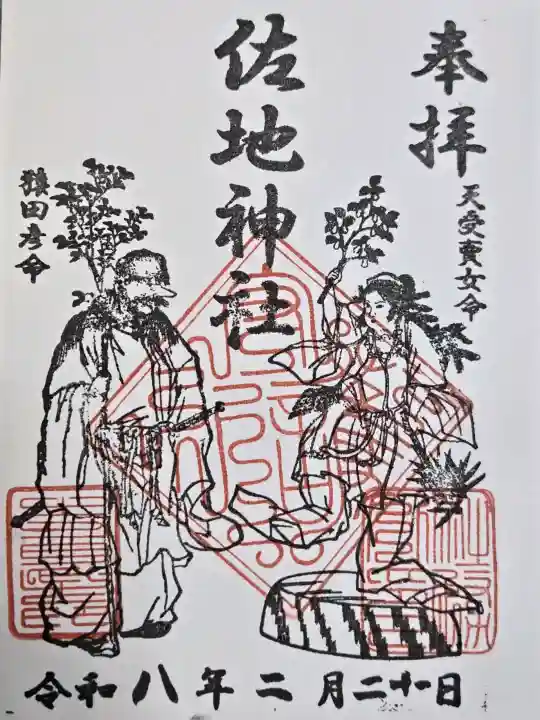 奉拝
天受賣女命
佐地神社
猿田彦命
令和八年二月二十日